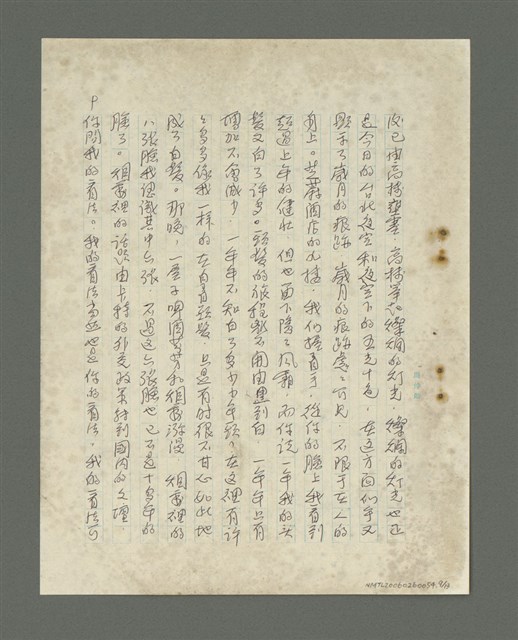 已由高樓 高樓 燦爛的燈光 燦爛的燈光也正
是今日的台北夜空和夜空下的五光十色。在這方面似乎又
顯示了歲月的痕跡。歲月的痕跡處處可見，不限于在人的
身上。芝蔴酒店的 樓，我們擡着手，從你的臉上我看到
超過上年的健壯，但也留下隱隱風霜，而你說一年我的头
髮又白了许多。頭髮的旅程 不開由黑到白，一年年只有
增加不會減少。一年年不知白了多少少年頭，在這裡有许
多多像我一样的在白着頭髮，只是有时很不甘心如此地
成了白髮。那晚，一屋子啤酒芳芳和烟雾瀰漫。烟雾裡的
八張臉我認識其中六張，不過這六張臉也已不是十多年的
臉了。烟雾裡的话題由卡特的外交政策轉到國内的文壇。
你問我的看法。我的看法当然也是你的看法。我的看法可
P
NMTL20060260039, 9/11